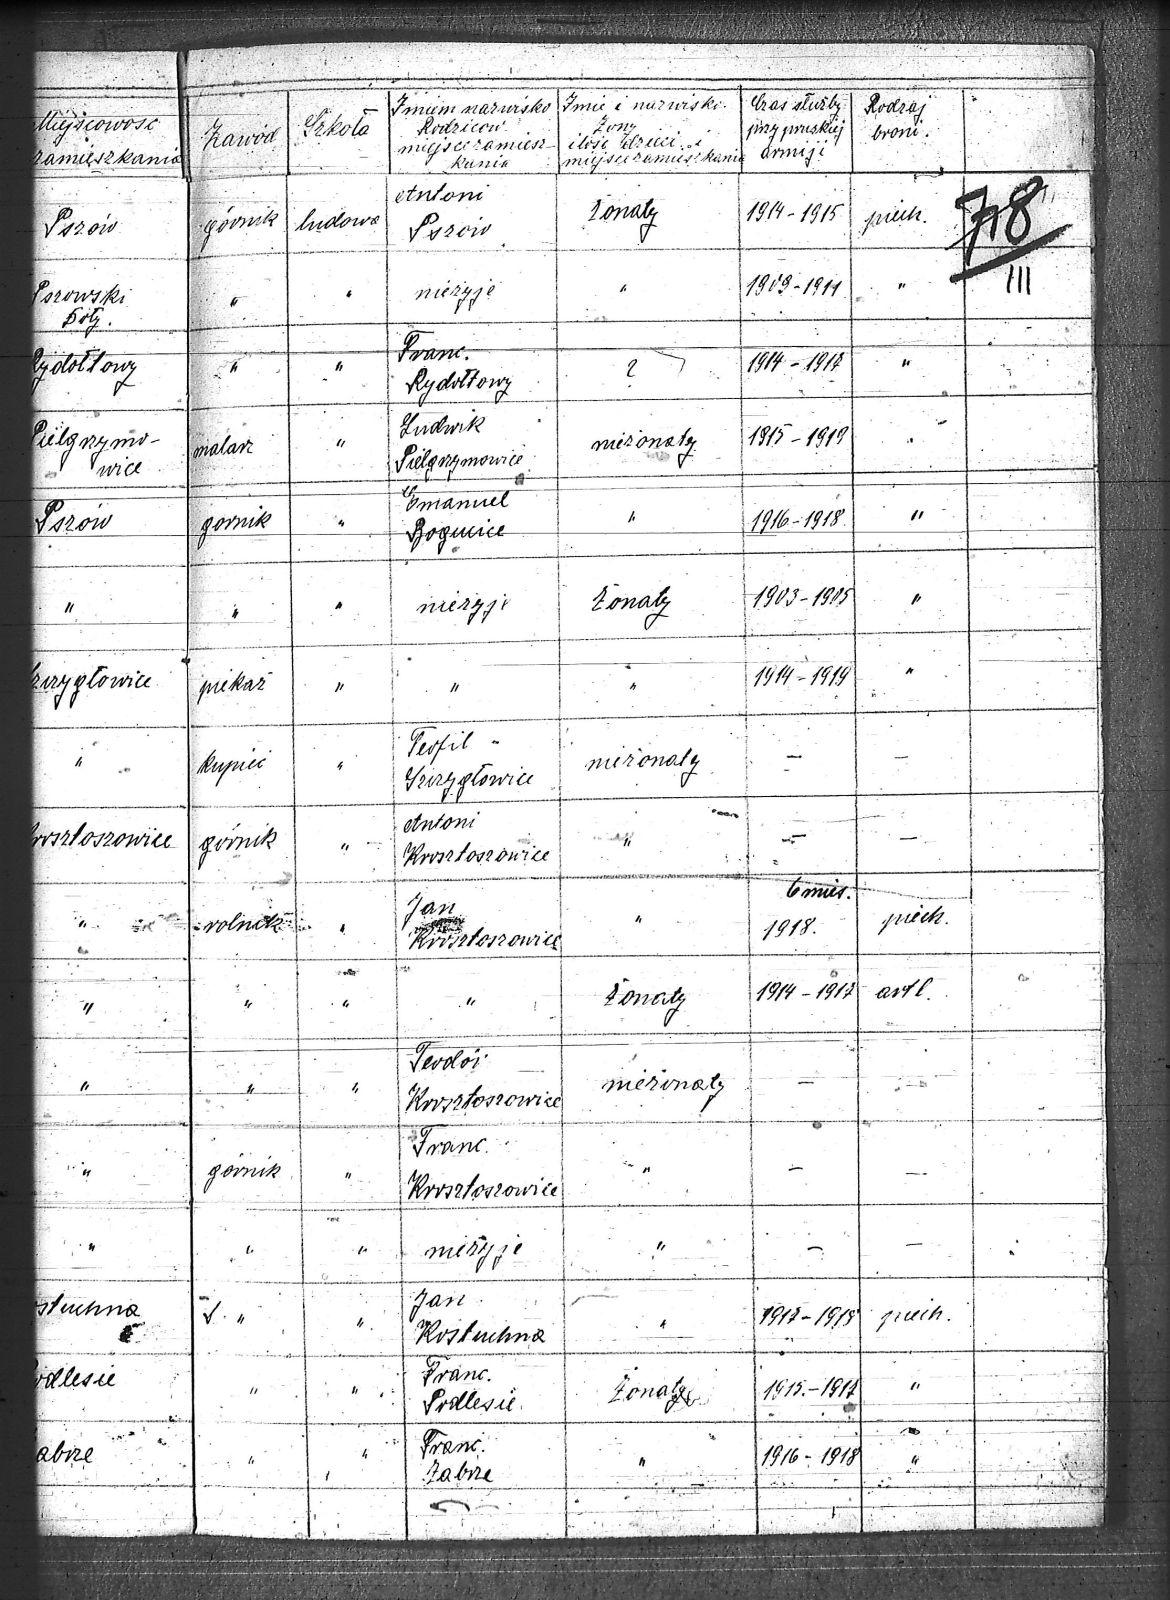 Miejscowość zamieszkania Zawód Szkoła Imiem nazwisko Rodziców miejsce zamiesz-kania Imie i nazwisko Zony ilość Idzieci i miejsce zamieszkania Czas służby przy pruskiej armiji Rodzaj broni.
78
III
Pszów górnik ludowa Antoni Pszów Żonaty 1914-1915 piech.
Pszowski Doły. " " nieżyje " 1909-1911 "
Rydołtowy " " Franc. Rydołtowy ? 1914-1917 "
Pielgrzymo-wice malarz " Ludwik Pielgrzymowice nieżonaty 1915-1919 "
Pszów gornik " Emanuel Roguice " 1916-1918 "
" " " nieżyje Żonaty 1903-1905 "
Szczygłowice piekaż " " " 1914-1919 "
" kupiec " Teofil Szczygłowice nieżonaty — —
Krosztoszowice górnik " Antoni Krosztoszowice " — —
" rolnik " Jan Krosztoszowice " 6 mies. 1918. piech.
" " " " Żonaty 1914-1917 artl.
" " " Teodór Krosztoszowice nieżonaty — —
" górnik " Franc. Krosztoszowice " — —
" " " nieżyje " — —
ostuchna " " Jan Kostuchna " 1917-1918 piech.
odlesie " " Franc. Podlesie. Żonaty 1915.-1917 "
abrze " " Franc. Zabrze " 1916-1918 "